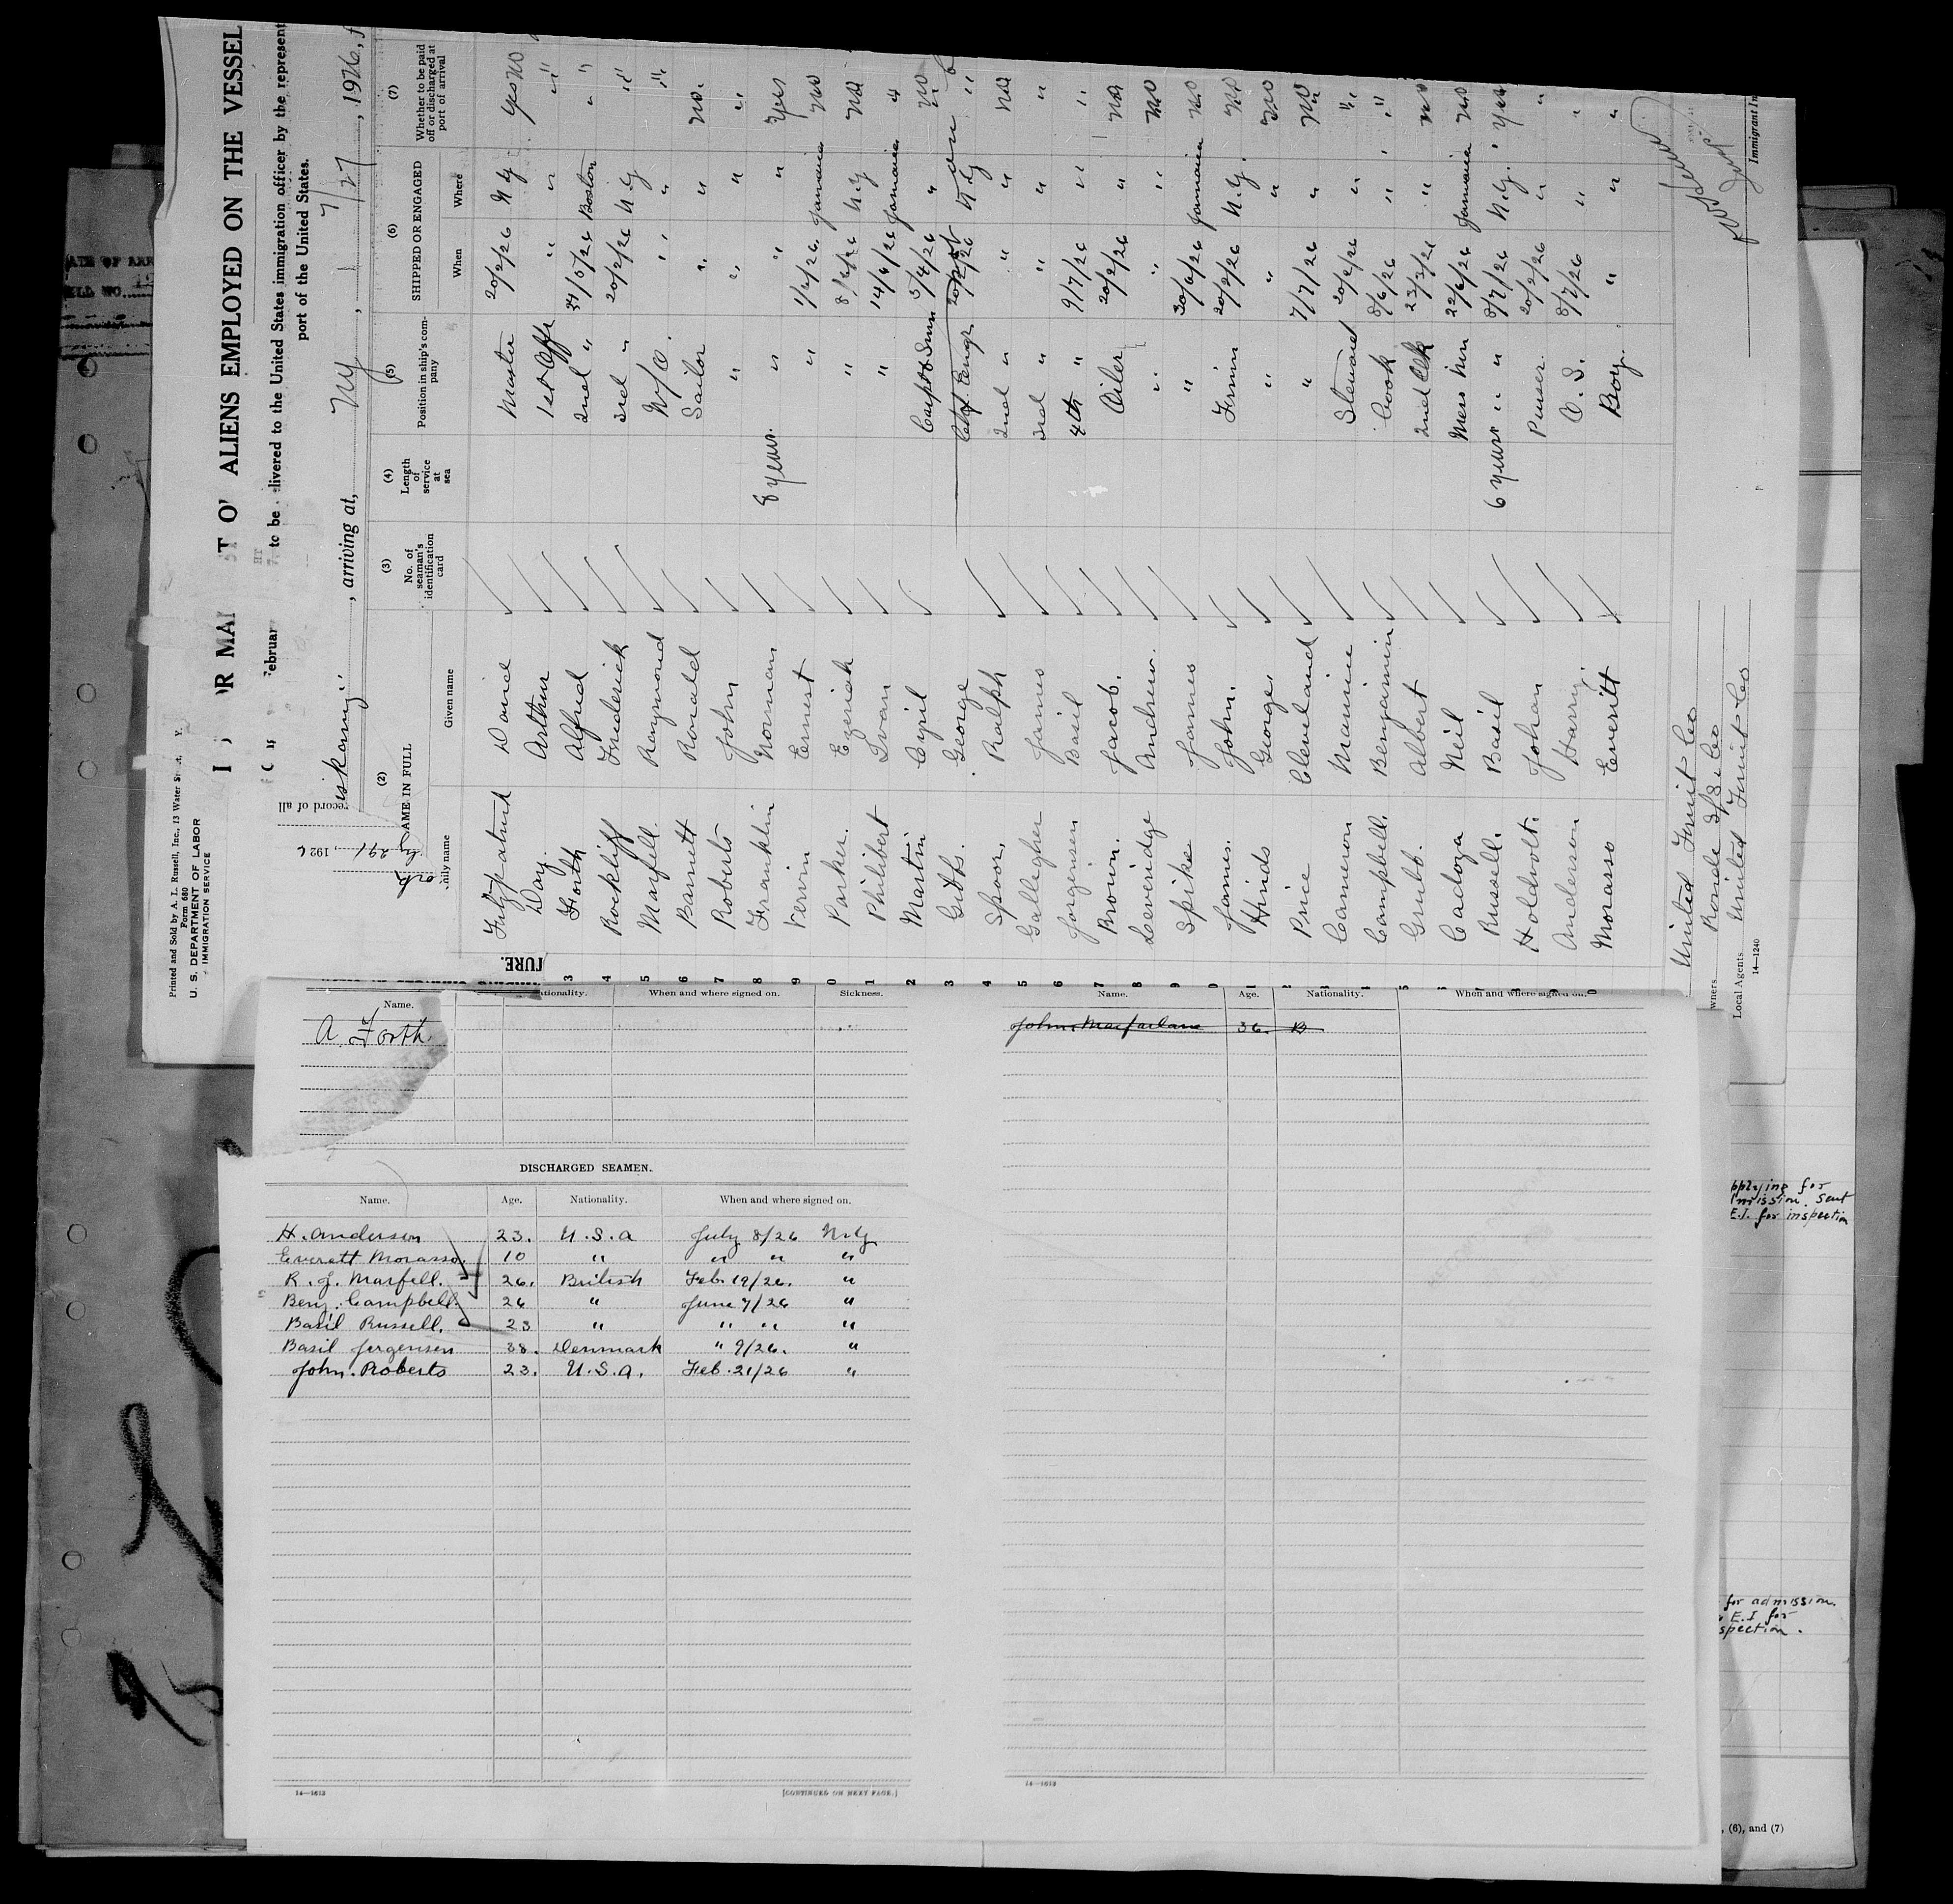 Printed and Sold by A. L. Russell, Inc., 13 Water Street, N. Y.
Form 680
U. S. DEPARTMENT OF LABOR
IMMIGRATION SERVICE
ALIENS EMPLOYED ON THE VESSEL
to be delivered to the United States immigration officer by the represent
port of the United States.
record of all
iskania, arriving at, NY, 7/27, 1926, f
(2)
AME IN FULL
nily name
Given name
(3)
No. of seaman's identification card
(4)
Length of service at sea
(5)
Position in ship's company
(6)
SHIPPED OR ENGAGED
When
Where
(7)
Whether to be paid off or discharged at port of arrival
Fitzpatrick David Master 20/2/26 N Y Yes No
Day. Arthur 1st Offr " " "
Forth Alfred 2nd " 24/5/26 Boston "
Rockliff Frederick 3rd " 20/2/26 N.Y "
Marfell. Raymond W/O. " " "
Barrett Ronald Sailor " " No.
Roberts John " " " "
Franklin Norman 8 years. " " " Yes
Vervin Ernest " 1/6/26. Jamaica No
Parker. Ezeriah " 8/6/26 N.Y No
Philibert Ivan " 14/6/26 Jamaica "
Martin Cyril 5/4/26 " No
Gibbs. George Chf. Engr 20/2/26 N.Y "
Spoor, Ralph 2nd " " " No
Gallegher James 3rd " " " "
Jorgensen Basil 4th " 9/7/26 " "
Brown. Jacob. Oiler 20/2/26 " No
Leevridge Andrew. " " " No
Spike James " 30/6/26 Jamaica No
James. John. Firmin 20/2/26 N.Y. No
Hinds George. " " " No
Price Cleveland " 7/7/26 " No
Cameron Maurice Steward 20/2/26 " "
Campbell. Benjamin Cook 8/6/26 " "
Grubb. Albert 2nd Ck 23/3/26 " No
Cadoza Neil Mess Mn 22/6/26 Jamaica No
Russell. Basil 6 years " " 8/7/26 N.Y. Yes
Holdvolt. Johan Purser. 20/2/26 " "
Anderson Harry. O. S. 8/7/26 " "
Morasso Everitt Boy. " " "
United Fruit Co
wners.
Local Agents United Fruit Co
14—1240
Immigrant In
TURE.
Name.
ationality.
When and where signed on.
Sickness.
A. Forth
DISCHARGED SEAMEN.
Name. Age. Nationality. When and where signed on.
H. Anderson 23. U.S.A July 8/26 N.Y
Everett Morasso. 10 " " " "
R. J. Marfell. 26. British Feb. 19/26. "
Benj. Campbell. 26 " June 7/26 "
Basil Russell. 23 " " " "
Basil Jorgensen 38. Denmark " 9/26. "
John. Roberts 23. U.S.A. Feb. 21/26 "
14—1613
[CONTINUED ON NEXT PAGE.]
Name. Age. Nationality. When and where signed on.
John Macfarlane 36. B
14—1613
pplying for
mission. Sent
E.I. for inspection
for admission.
E.I for
spection.
, (6), and (7)